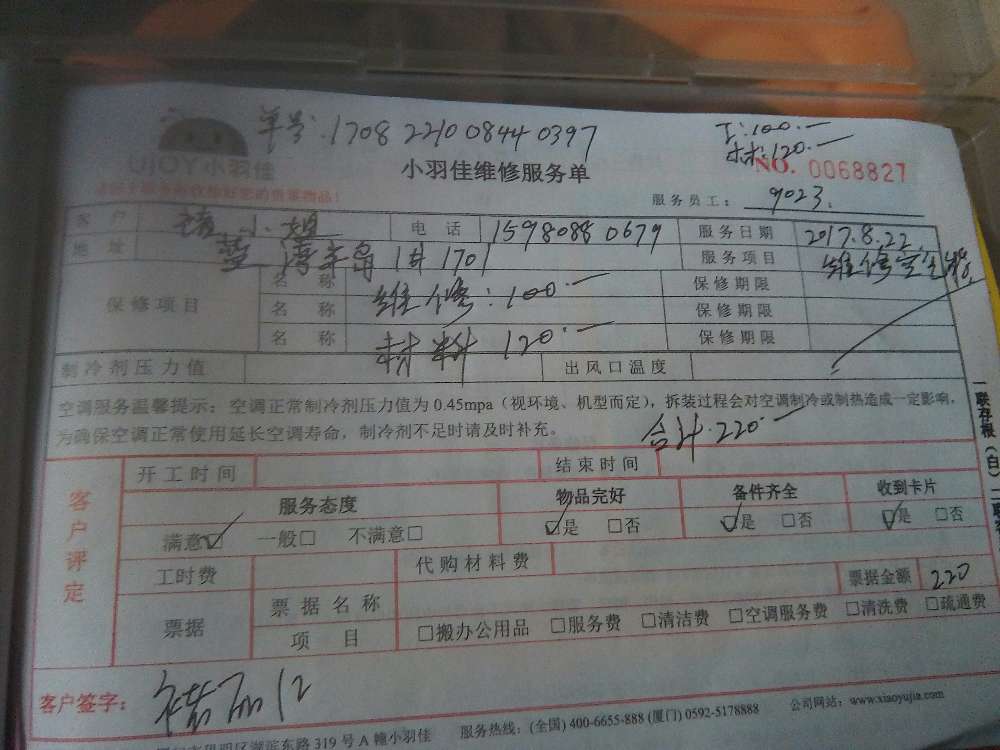 单号:1708 2210 0844 0397
工:100.—
材:120.—
UJOY小羽佳
小羽佳维修服务单
NO. 0068827
服务员工: 9023.
客 户 小姐 电 话 15980880679 服务日期 2017.8.22
地 址 湾半岛 1# 1701 服务项目 维修
保修项目 名 称 维修:100.— 保修期限
名 称 保修期限
名 称 材料 120.— 保修期限
制冷剂压力值 出风口温度
空调服务温馨提示：空调正常制冷剂压力值为 0.45mpa（视环境、机型而定），拆装过程会对空调制冷或制热造成一定影响，
为确保空调正常使用延长空调寿命，制冷剂不足时请及时补充。
合计.220.—
一联存根（白）
客户评定
开工时间 结束时间
服务态度 物品完好 备件齐全 收到卡片
满意☑ 一般□ 不满意□ ☑是 □否 ☑是 □否 ☑是 □否
工时费 代购材料费
票据 票据名称 票据金额 220
项 目 □搬办公用品 □服务费 □清洁费 □空调服务费 □清洗费 □疏通费
客户签字:
服务热线：(全国) 400-6655-888 (厦门) 0592-5178888 公司网站：www.xiaoyujia.com
东路 319 号 A 幢小羽佳